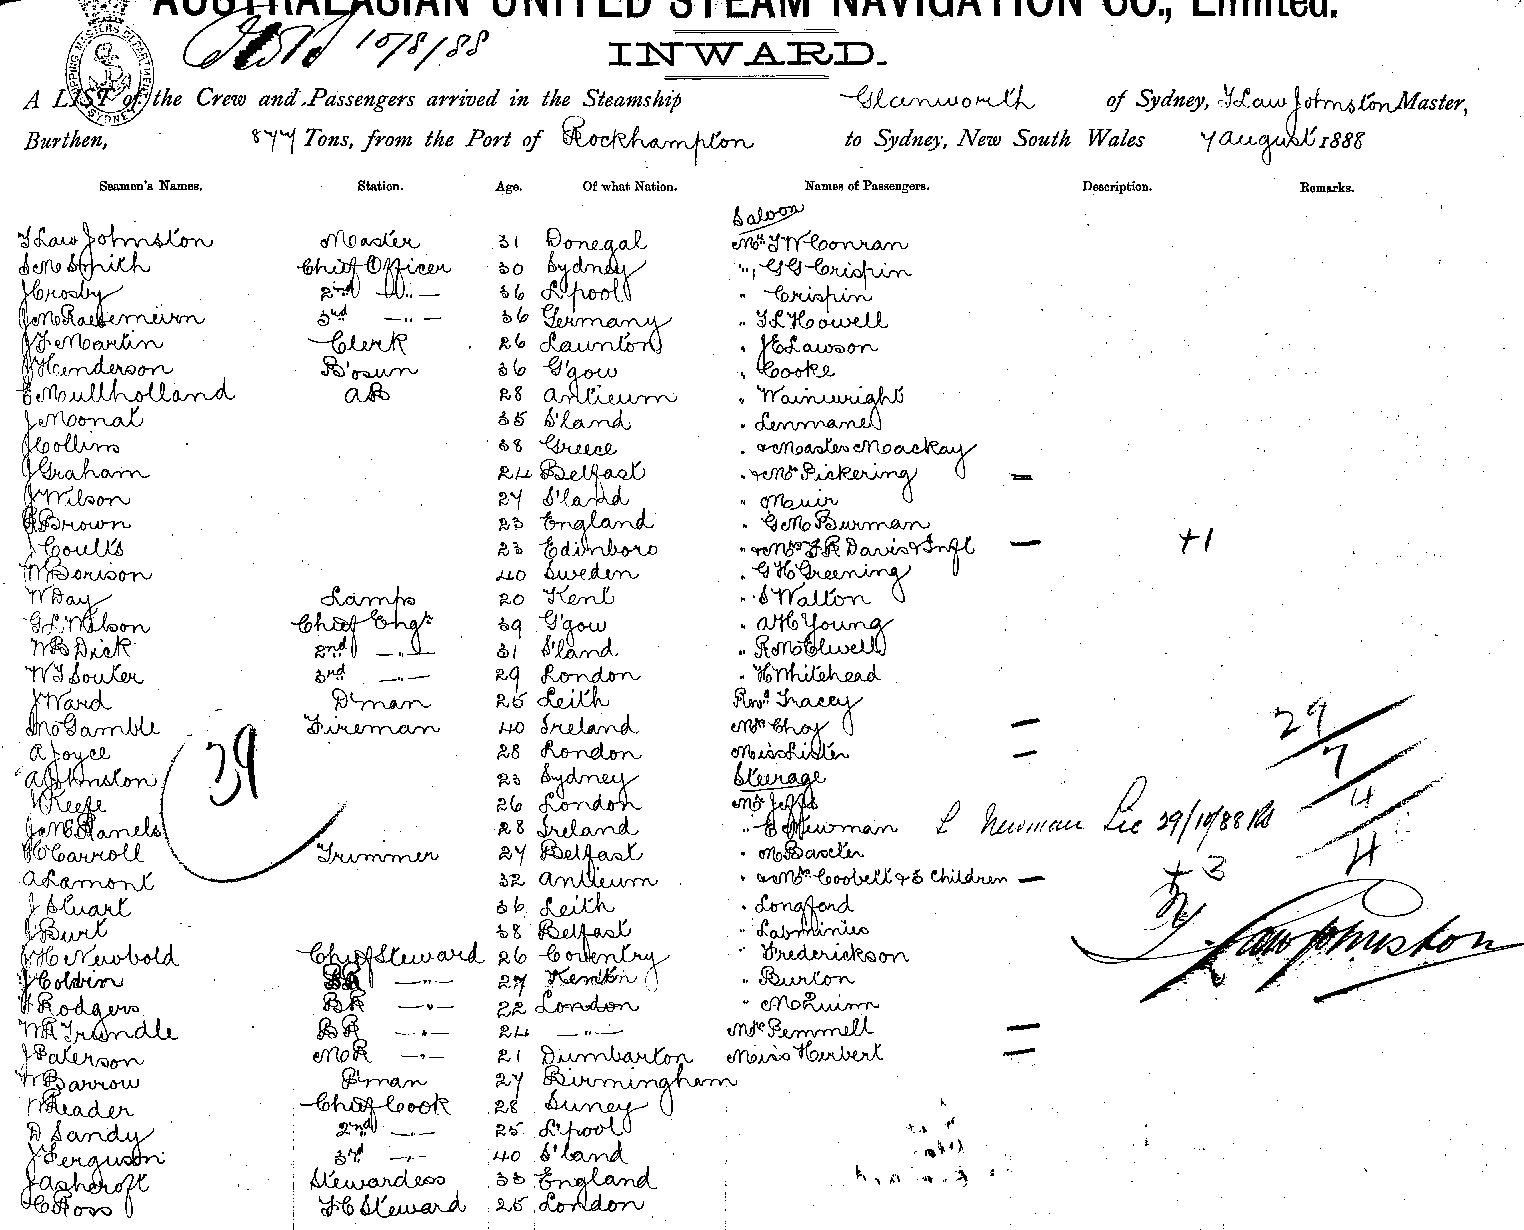 AUSTRALASIAN UNITED STEAM NAVIGATION CO., Limited.
10/8/88
INWARD.
SHIPPING MASTERS DEPARTMENT SYDNEY
A LIST of the Crew and Passengers arrived in the Steamship Glanworth of Sydney, T Law Johnston Master,
Burthen, 877 Tons, from the Port of Rockhampton to Sydney, New South Wales 7 August 1888
Seamen's Names. Station. Age. Of what Nation. Names of Passengers. Description. Remarks.
Saloon
T Law Johnston Master 31 Donegal Mr T W Conran
Smith Chief Officer 30 Sydney " G G Crispin
J Crosby 2nd -"- 36 L'pool " Crispin
3rd -"- 36 Germany " T L Howell
J F Martin Clerk 26 Launton " J E Lawson
J Henderson B'osun 36 G'gow " Cooke
E Mullholland AB 28 Antieum " Wainwright
J Monat 35 S'land "
J Collins 38 Greece " & Master Mackay
J Graham 24 Belfast " & Mrs Pickering —
J Wilson 27 S'land " Muir
R Brown 23 England " G M Burman
J Coutts 23 Edinboro " & Mrs F R Davis & Infl — +1
W Borison 40 Sweden " G H Greening
W Day Lamps 20 Kent " S Walton
G L Wilson Chief Engr 39 G'gow " A H Young
W B Dick 2nd -"- 31 S'land " R McElwell
W T Souter 3rd -"- 29 London " H Whitehead
J Ward D'man 25 Leith Revd Tracey
Mc Gamble Fireman 40 Ireland Mrs Choy — 29
A Joyce 28 London Miss Lister — 7
A Johnston 23 Sydney Steerage
39
V Keefe 26 London Mr Jeffs 4
28 Ireland " E Newman L Newman Lic 29/10/88
H Carroll Trimmer 27 Belfast " M Baxter 4
A Lamont 32 Antieum " & Mrs Corbett & 3 Children — + 3
J Stuart 36 Leith " Longford
J Burt 38 Belfast " Labminies
J H Newbold Chief Steward 26 Coventry " Frederickson Law Johnston
J Colvin BR -"- 27 Kenton " Burton
H Rodgers BR -"- 22 London " McQuinn
W R Trundle BR -"- 24 -"- Mrs Pemmell —
J Paterson MR -"- 21 Dumbarton Miss Herbert —
W Barrow P'man 27 Birmingham
W Reader Chief Cook 28 Surrey
D Sandy 2nd -"- 25 L'pool
J Ferguson 3rd -"- 40 S'land
J Ashcroft Stewardess 33 England
C Ross F C Steward 25 London